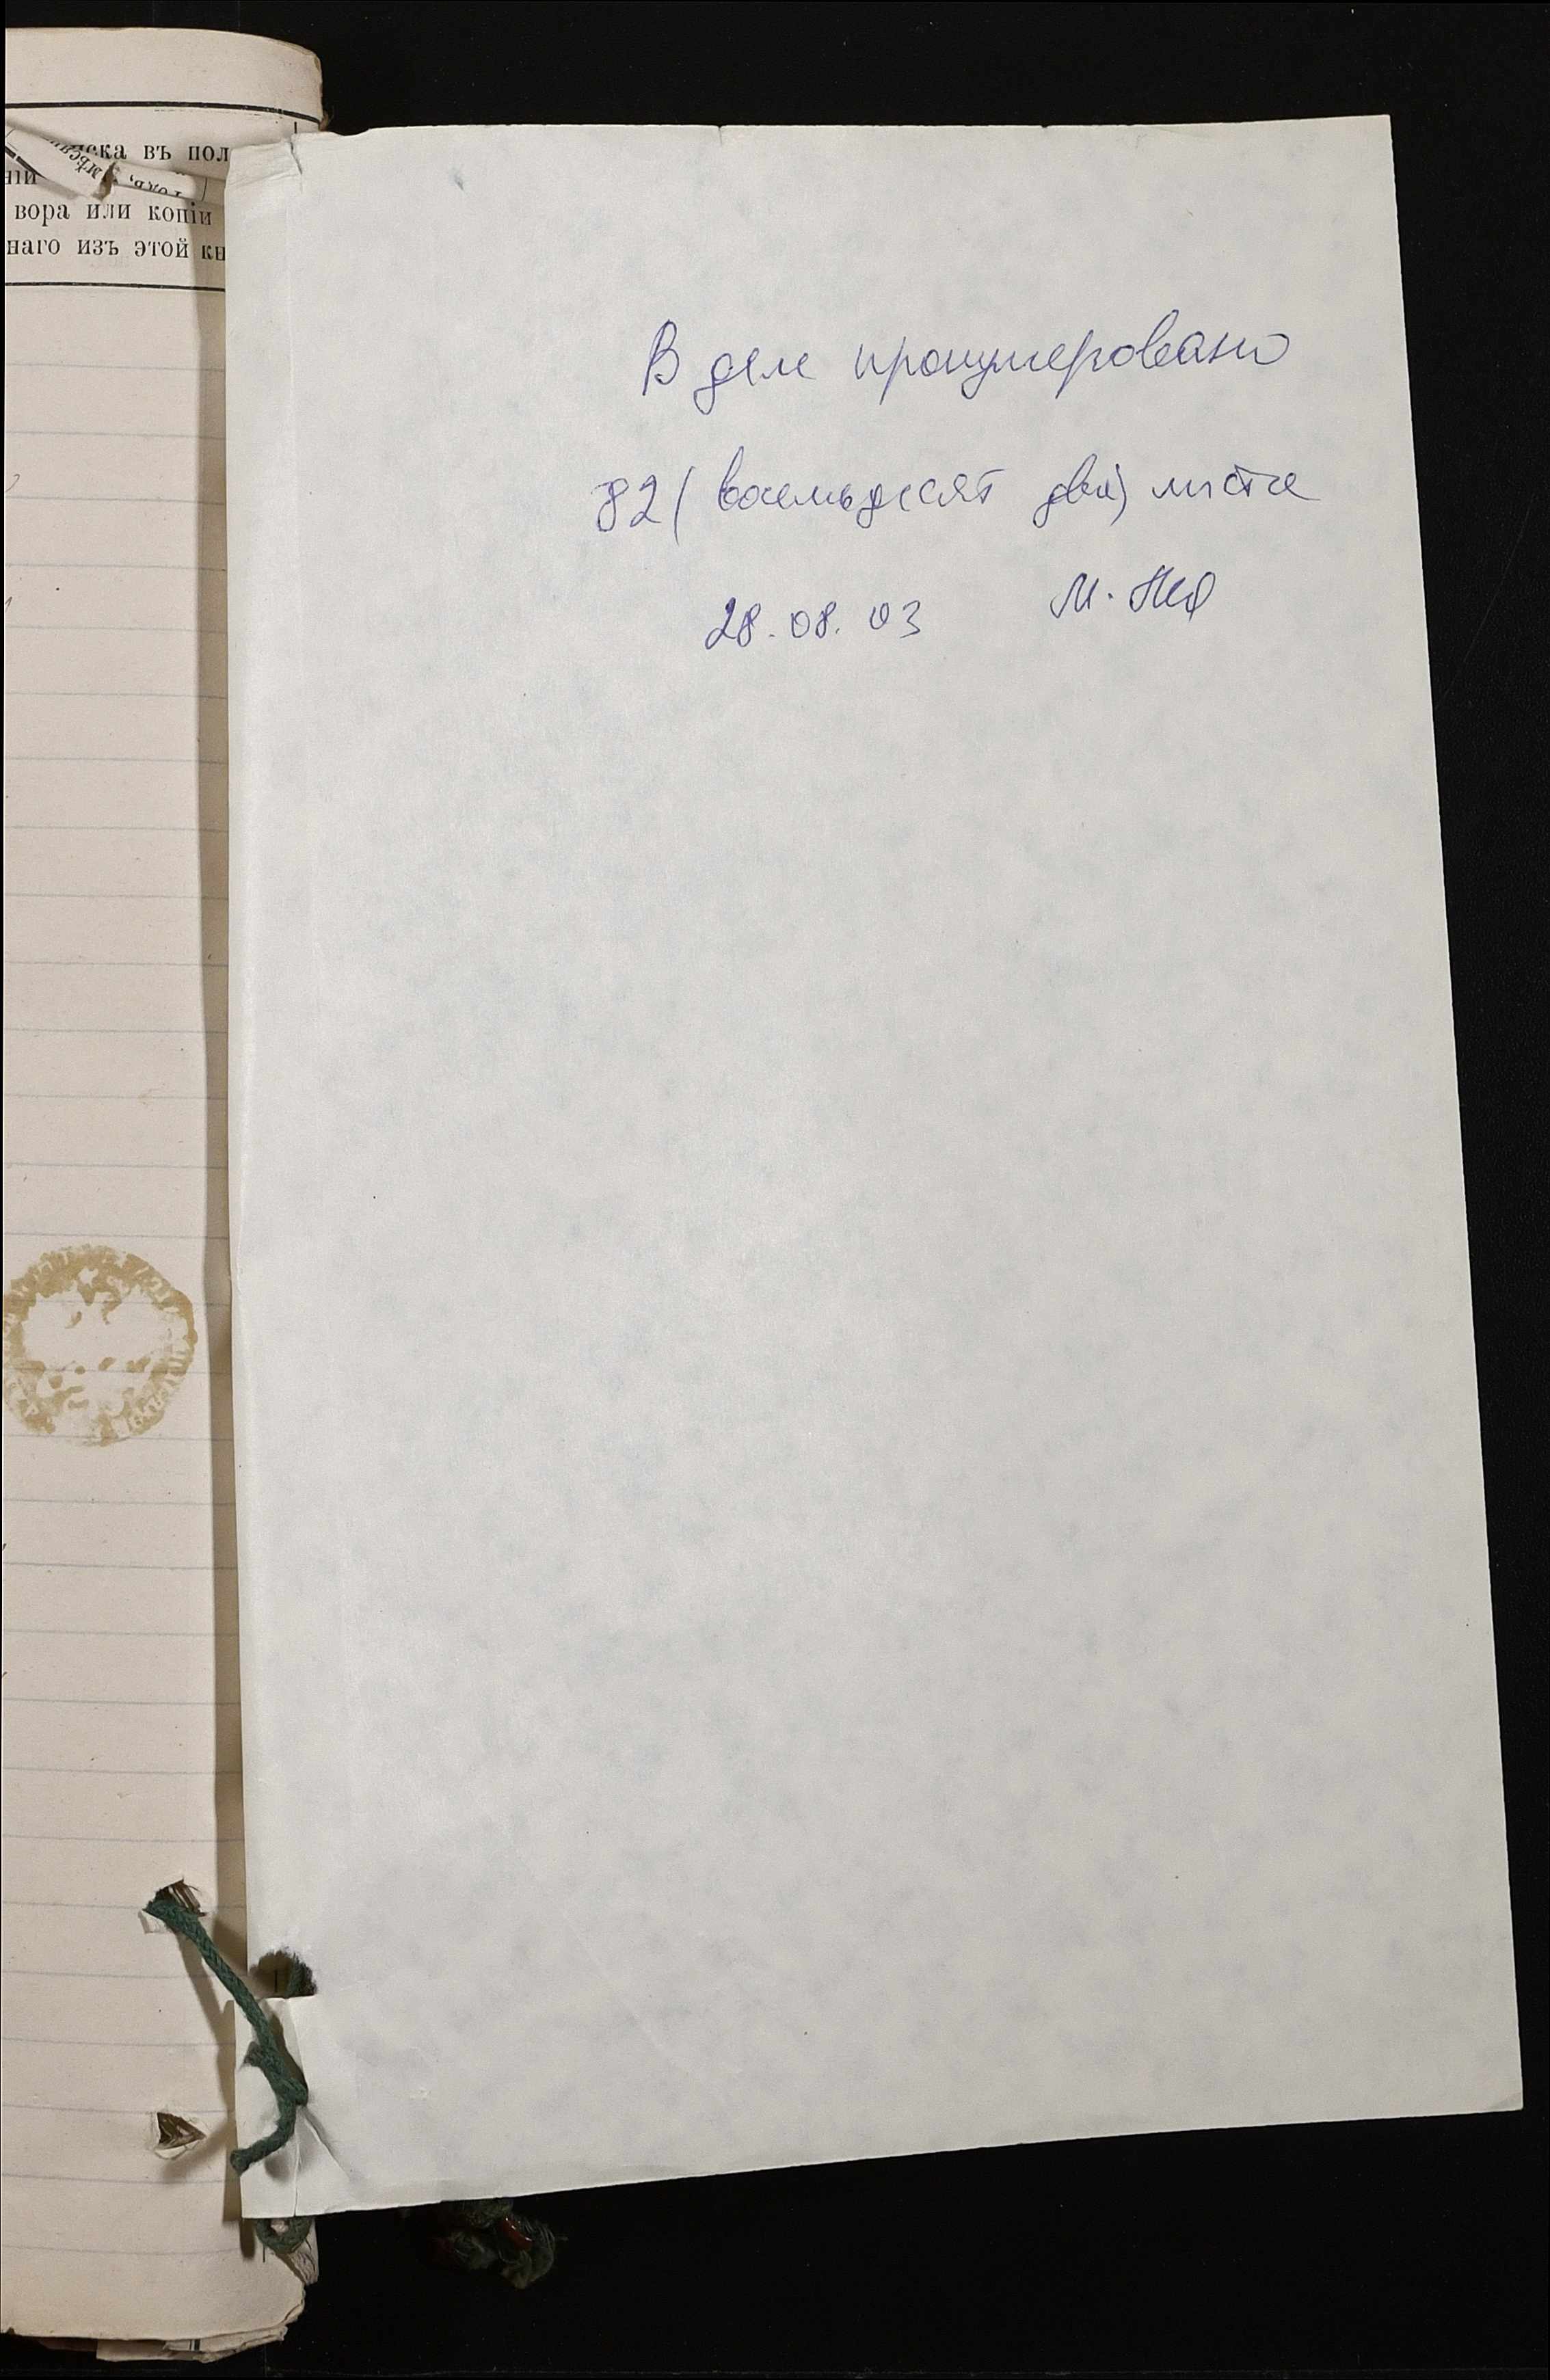 ска въ пол
ніи
вора или копіи
наго изъ этой кн
В деле пронумеровано
82 (восемьдесят два) листа
28.08.03 М.